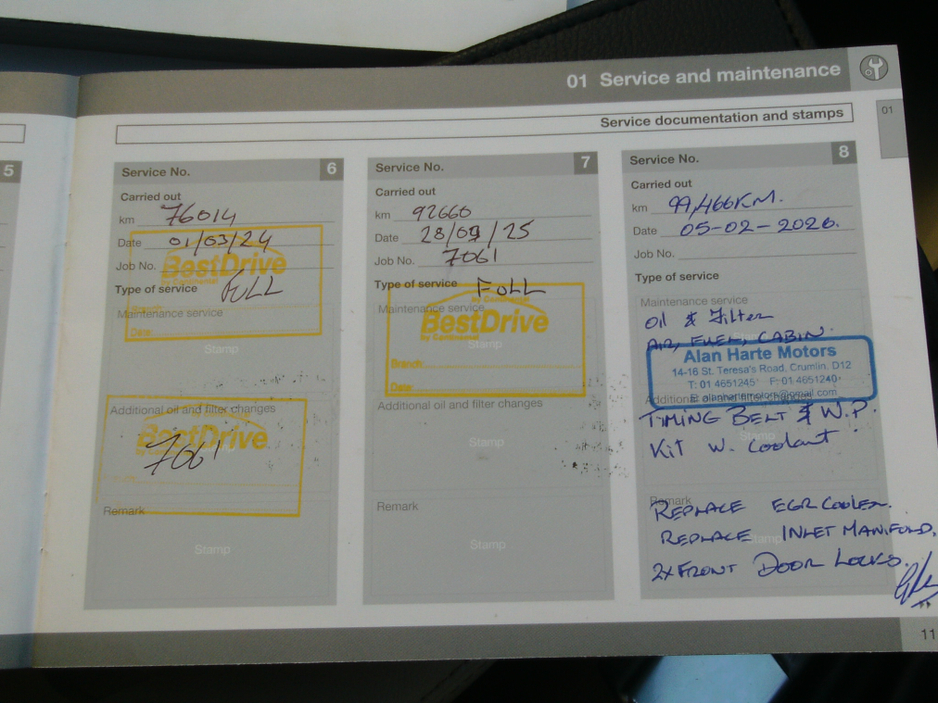 01 Service and maintenance
01
Service documentation and stamps
5
Service No. 6
Carried out
km 76014
Date 01/03/24
Job No.
BestDrive
by Continental
Type of service FULL
Maintenance service
Date:
Stamp
Additional oil and filter changes
BestDrive
7061
Remark
Stamp
Service No. 7
Carried out
km 92660
Date 28/09/25
Job No. 7061
Type of service FULL
Maintenance service
by Continental
BestDrive
by Continental
Stamp
Branch:
Date:
Additional oil and filter changes
Stamp
Remark
Stamp
Service No. 8
Carried out
km 99,466KM.
Date 05-02-2026.
Job No.
Type of service
Maintenance service
Oil & Filter
AIR, FUEL, CABIN.
Alan Harte Motors
14-16 St. Teresa's Road, Crumlin, D12
T: 01 4651245 F: 01 4651240
Additional oil and filter changes
TIMING BELT & W.P.
Kit W. Coolant
Stamp
Remark
REPLACE EGR COOLER.
REPLACE INLET MANIFOLD.
Stamp
2x FRONT DOOR LOCKS.
11